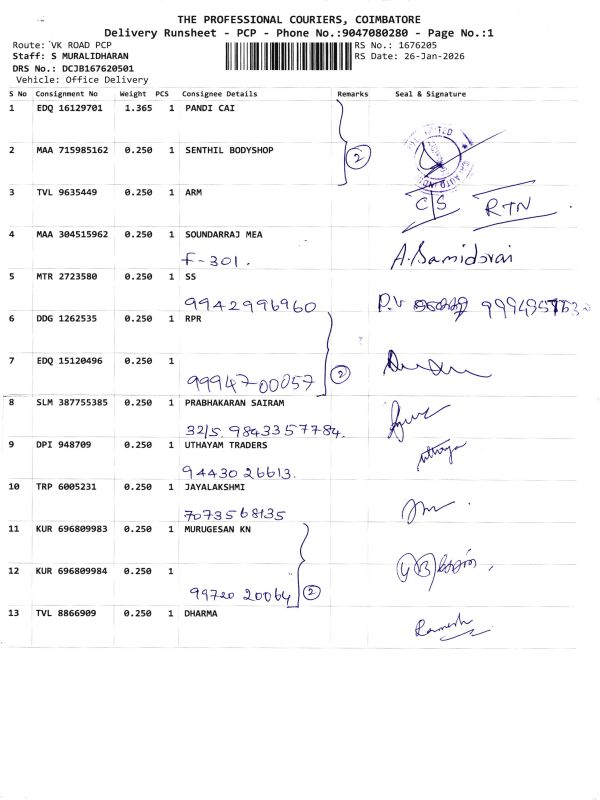 THE PROFESSIONAL COURIERS, COIMBATORE
Delivery Runsheet - PCP - Phone No.:9047080280 - Page No.:1
Route: VK ROAD PCP
RS No.: 1676205
Staff: S MURALIDHARAN
RS Date: 26-Jan-2026
DRS No.: DCJB167620501
Vehicle: Office Delivery
S No Consignment No Weight PCS Consignee Details Remarks Seal & Signature
1 EDQ 16129701 1.365 1 PANDI CAI
2 MAA 715985162 0.250 1 SENTHIL BODYSHOP
2
3 TVL 9635449 0.250 1 ARM
C/S RTN
4 MAA 304515962 0.250 1 SOUNDARRAJ MEA
F-301. A.Samidorai
5 MTR 2723580 0.250 1 SS
9942996960 P.V
6 DDG 1262535 0.250 1 RPR
7 EDQ 15120496 0.250 1
99947-00057 2
8 SLM 387755385 0.250 1 PRABHAKARAN SAIRAM
32/5. 9843357784.
9 DPI 948709 0.250 1 UTHAYAM TRADERS
uthaya
94430 26613.
10 TRP 6005231 0.250 1 JAYALAKSHMI
7073568135
11 KUR 696809983 0.250 1 MURUGESAN KN
12 KUR 696809984 0.250 1
99720 20064 2
13 TVL 8866909 0.250 1 DHARMA
Ramesh